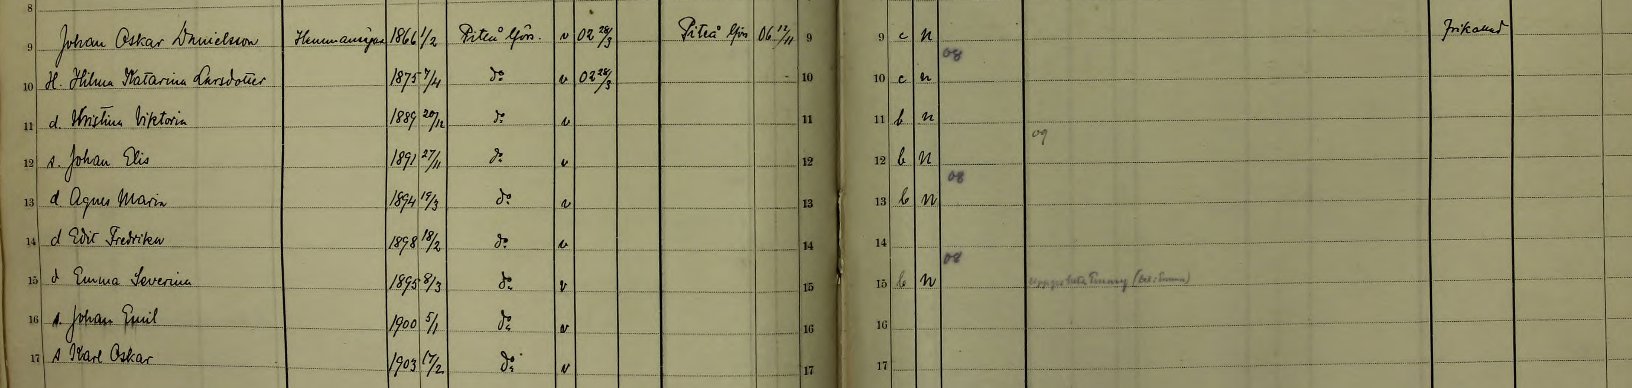 8
9 Johan Oskar Danielsson Hemmansägare 1866 1/2 Piteå lfös. v 02 28/3 Piteå lfös 06 12/11 9 9 c n frikänd
08
10 H. Hilma Katarina Larsdotter 1875 7/4 do v 02 28/3 10 10 c n
11 d. Kristina Viktoria 1889 20/12 do v 11 11 b n
09
12 s. Johan Elis 1891 27/11 do v 12 12 b n
08
13 d Agnes Maria 1894 19/3 do v 13 13 b n
14 d Edit Fredrika 1898 18/2 do v 14 14
08
15 d Emma Severina 1895 8/3 do v 15 15 b n
16 s. Johan Emil 1900 5/1 do v 16 16
17 s Karl Oskar 1903 17/2 do v 17 17